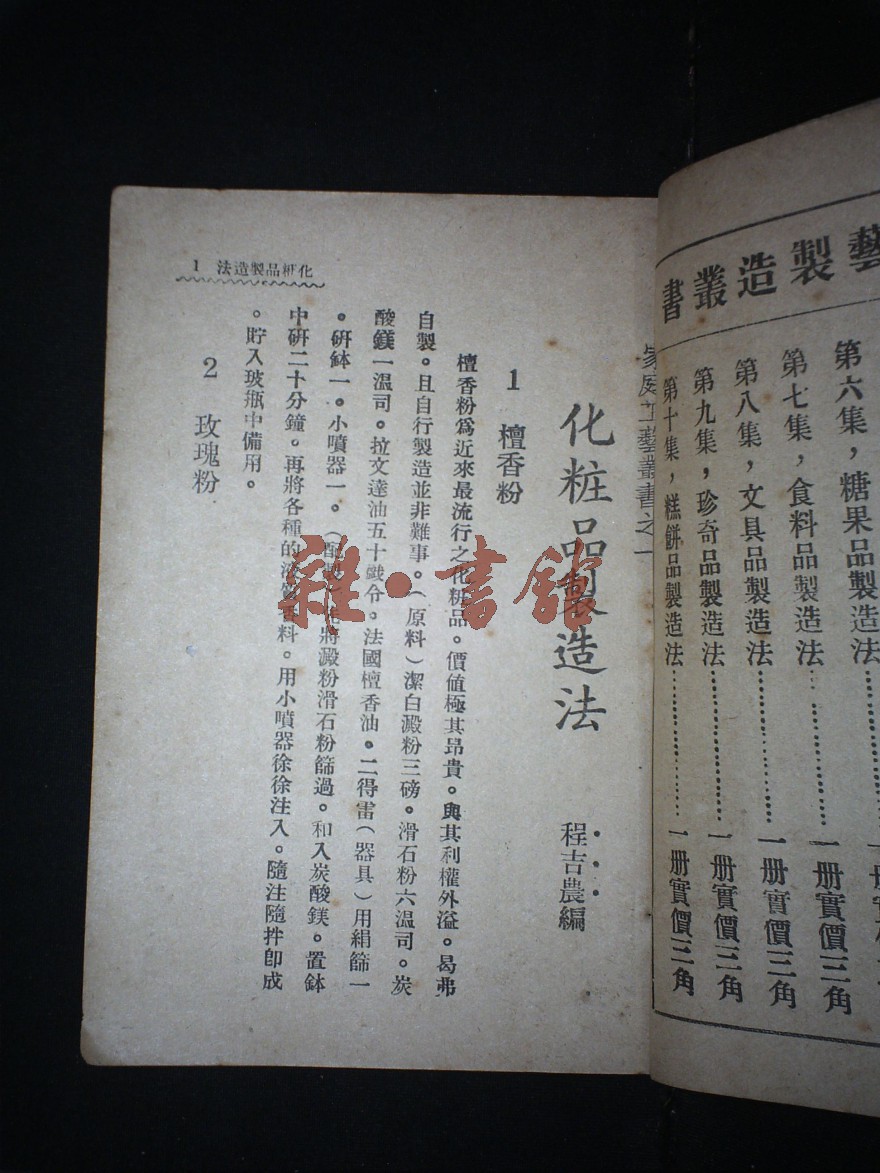 藝製造叢書
第六集，糖果品製造法
第七集，食料品製造法……一册實價三角
第八集，文具品製造法……一册實價三角
第九集，珍奇品製造法……一册實價三角
第十集，糕餅品製造法……一册實價三角
家庭工藝叢書之一
化粧品製造法
程吉農編
1 檀香粉
檀香粉爲近來最流行之化粧品。價値極其昂貴。與其利權外溢。曷弗
自製。且自行製造並非難事。（原料）潔白澱粉三磅。滑石粉六温司。炭
酸鎂一温司。拉文達油五十戥令。法國檀香油。二得雷（器具）用絹篩一
。硏鉢一。小噴器一。（配製）先將澱粉滑石粉篩過。和入炭酸鎂。置鉢
中硏二十分鐘。再將各種的液質香料。用小噴器徐徐注入。隨注隨拌卽成
。貯入玻瓶中備用。
2 玫瑰粉
化粧品製造法 1
雜·書館